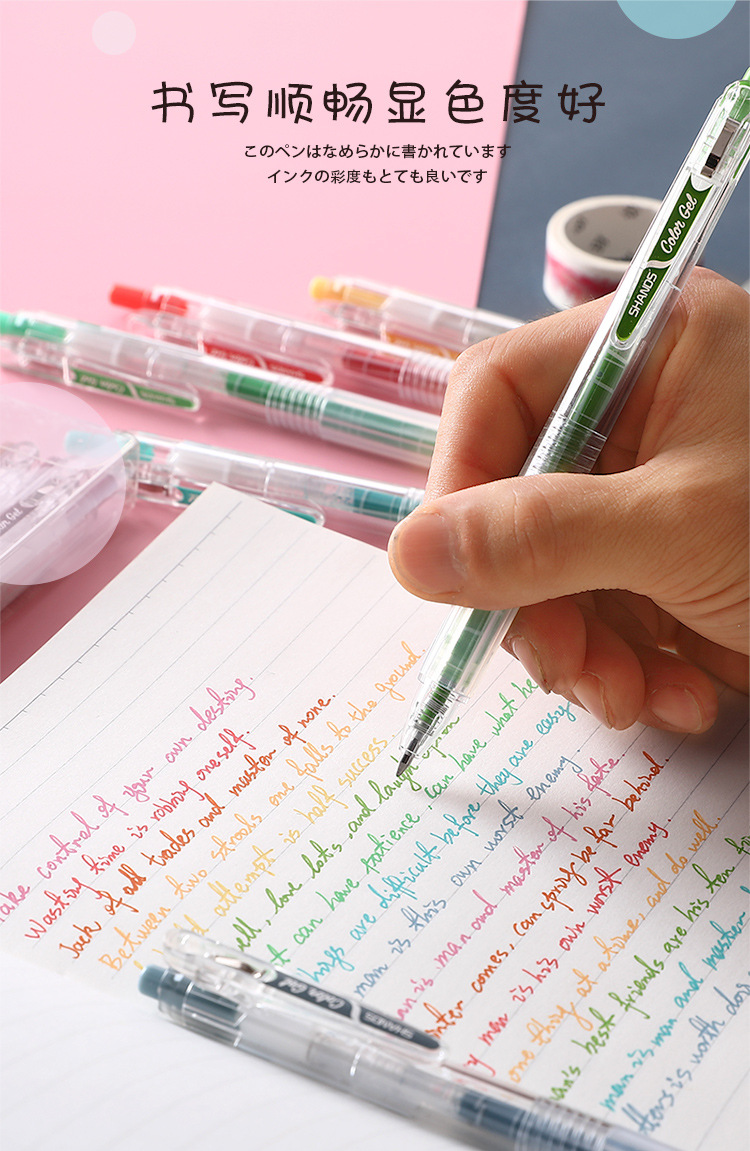 书写顺畅显色度好
このペンはなめらかに書かれています
インクの彩度もとても良いです
Color Gel
SHANDS
Color Gel
SHANDS
ake control of your own destiny.
Wasting time is robbing oneself.
Jack of all trades and master of none.
Between two stools one falls to the ground.
attempt is half success.
ell, love lots, and laugh often
t can have patience, can have what he
things are difficult before they are easy
man is this own worst enemy.
an is man and master of his fate
inter comes, can spring be far behind.
ry man is his own worst enemy.
one thing at a time, and do well.
an's best friends are his ten fin
man is man and master
tters is worth doin
Color Gel
SHANDS